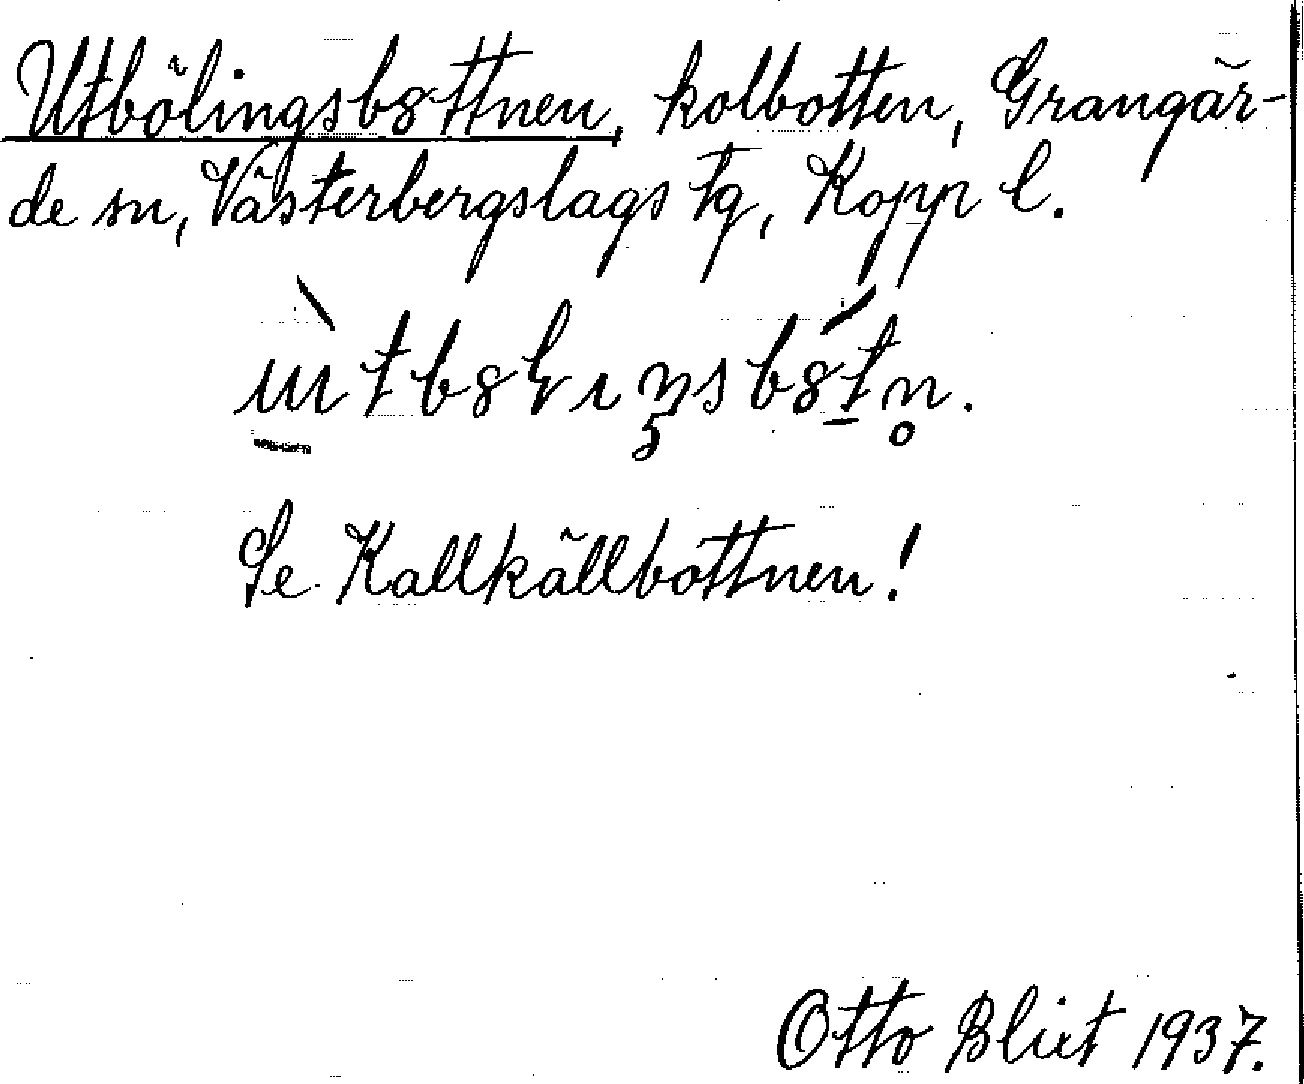 Utbölingsbottnen, kolbotten, Grangär-
de sn, Västerbergslags tg, Kopp l.
Se Kallkällbottnen!
Otto Blixt 1937.